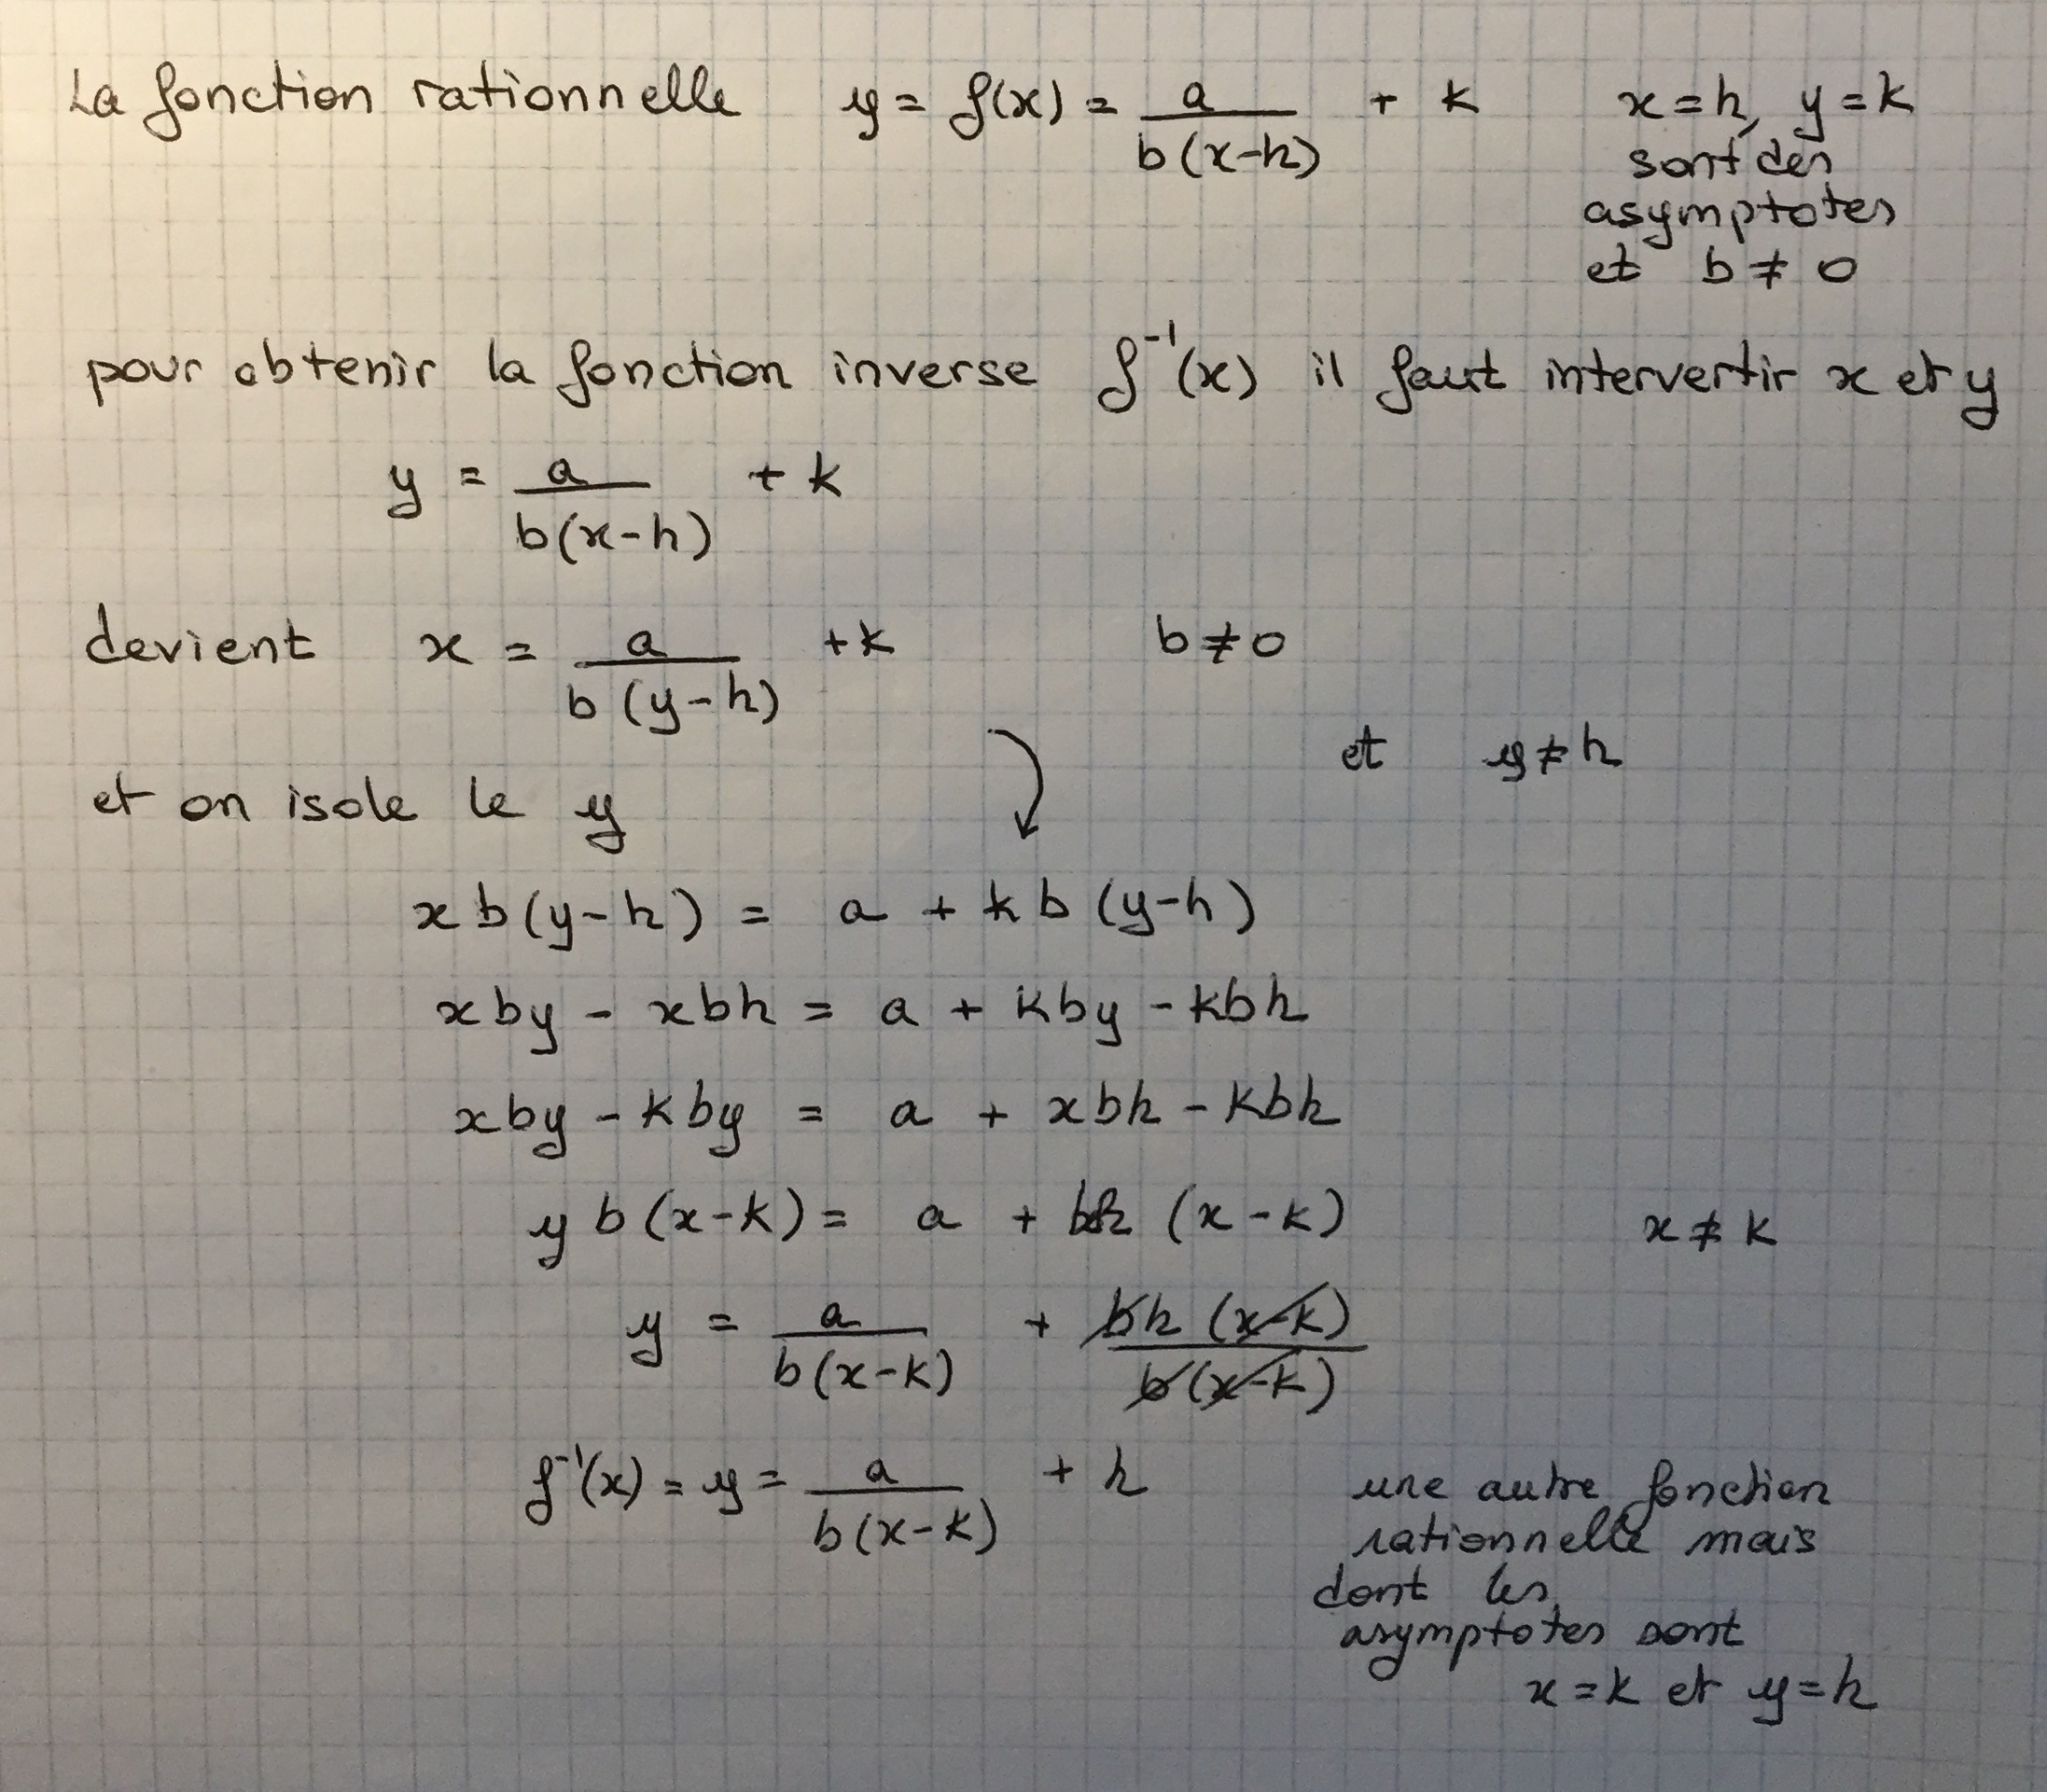 La fonction rationnelle y = f(x) = a / b(x-h) + k x = h, y = k
sont des
asymptotes
et b ≠ 0
pour obtenir la fonction inverse f⁻¹(x) il faut intervertir x et y
y = a / b(x-h) + k
devient x = a / b(y-h) + k b ≠ 0
et y ≠ h
et on isole le y
x b(y-h) = a + k b (y-h)
xby - xbh = a + kby - kbh
xby - kby = a + xbh - kbh
y b(x-k) = a + bh (x-k) x ≠ k
y = a / b(x-k) + bh (x-k) / b(x-k)
f⁻¹(x) = y = a / b(x-k) + h
une autre fonction
rationnelle mais
dont les
asymptotes sont
x = k et y = h